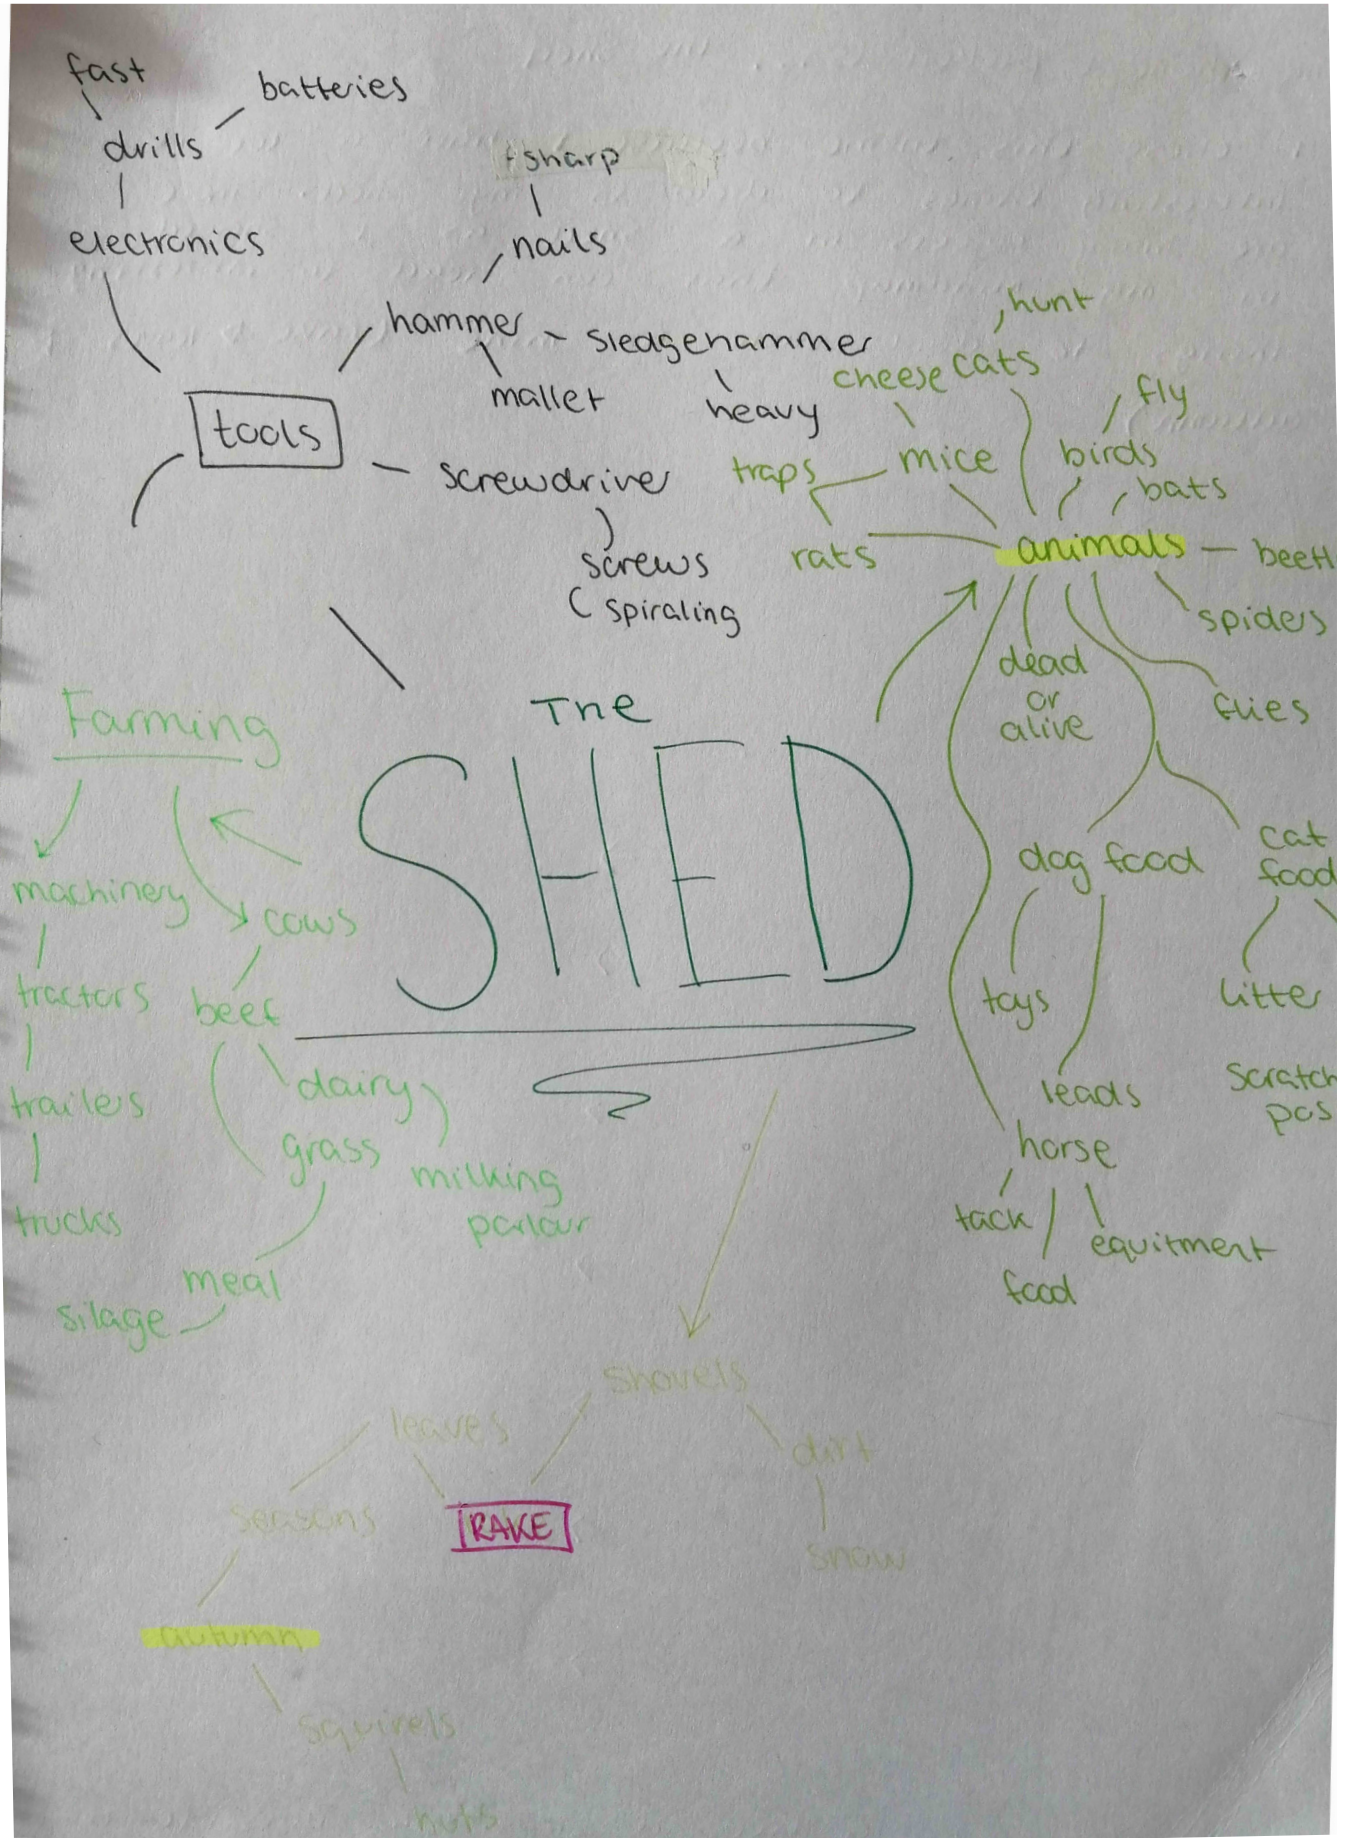 fast
batteries
drills
sharp
electronics
nails
hammer
sledgehammer
mallet
heavy
tools
screwdriver
screws
spiraling
hunt
cheese
cats
fly
traps
mice
birds
bats
rats
animals
beetl
spiders
dead
or
alive
flies
dog food
cat
food
toys
litter
leads
scratch
pos
horse
tack
equitment
food
The
SHED
Farming
machinery
cows
tractors
beef
trailers
dairy
grass
milking
parlour
trucks
meal
silage
shovels
leaves
dirt
seasons
RAKE
snow
autumn
squirels
nuts